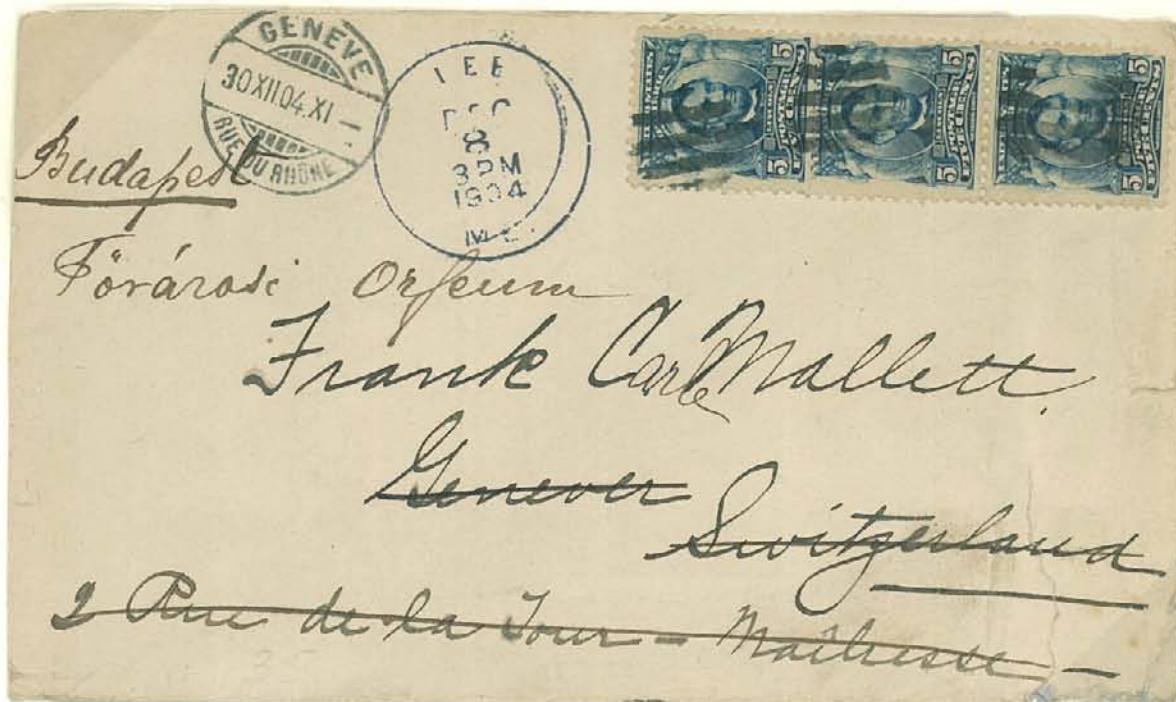 GENÈVE
30.XII.04.XI
RUE DU RHÔNE
LEE
DEC
8
3 PM
1904
ME.
5 5
5 5
5 5
Budapest
Fövárosi Orfeum
Frank Carle Mallett.
Genever
Switzerland
2 Rue de la Tour - Maîtresse -